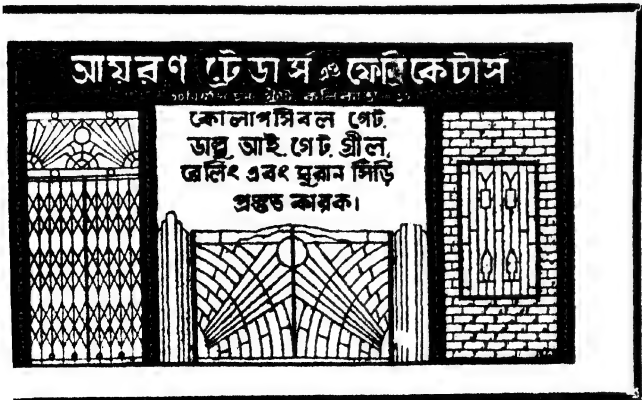 আয়রণ ট্রেডার্স এণ্ড ফেব্রিকেটার্স
কোলাপসিবল গেট,
ডাব্লু আই. গেট, গ্রীল,
রেলিং এবং ঘুরান সিঁড়ি
প্রস্তুত কারক।